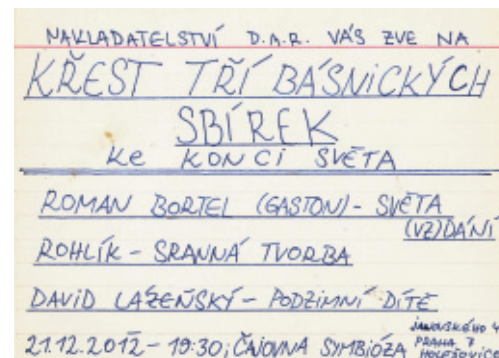 NAKLADATELSTVÍ D.A.R. VÁS ZVE NA
KŘEST TŘÍ BÁSNICKÝCH
SBÍREK
KE KONCI SVĚTA
ROMAN BORTEL (GASTON) - SVĚTA
(VZ)DÁNÍ
ROHLÍK - SRANNÁ TVORBA
DAVID LAŽEŇSKÝ - PODZIMNÍ DÍTĚ
21.12.2012 - 19:30; ČAJOVNA SYMBIÓZA
JANOVSKÉHO
PRAHA 7
HOLEŠOVICE